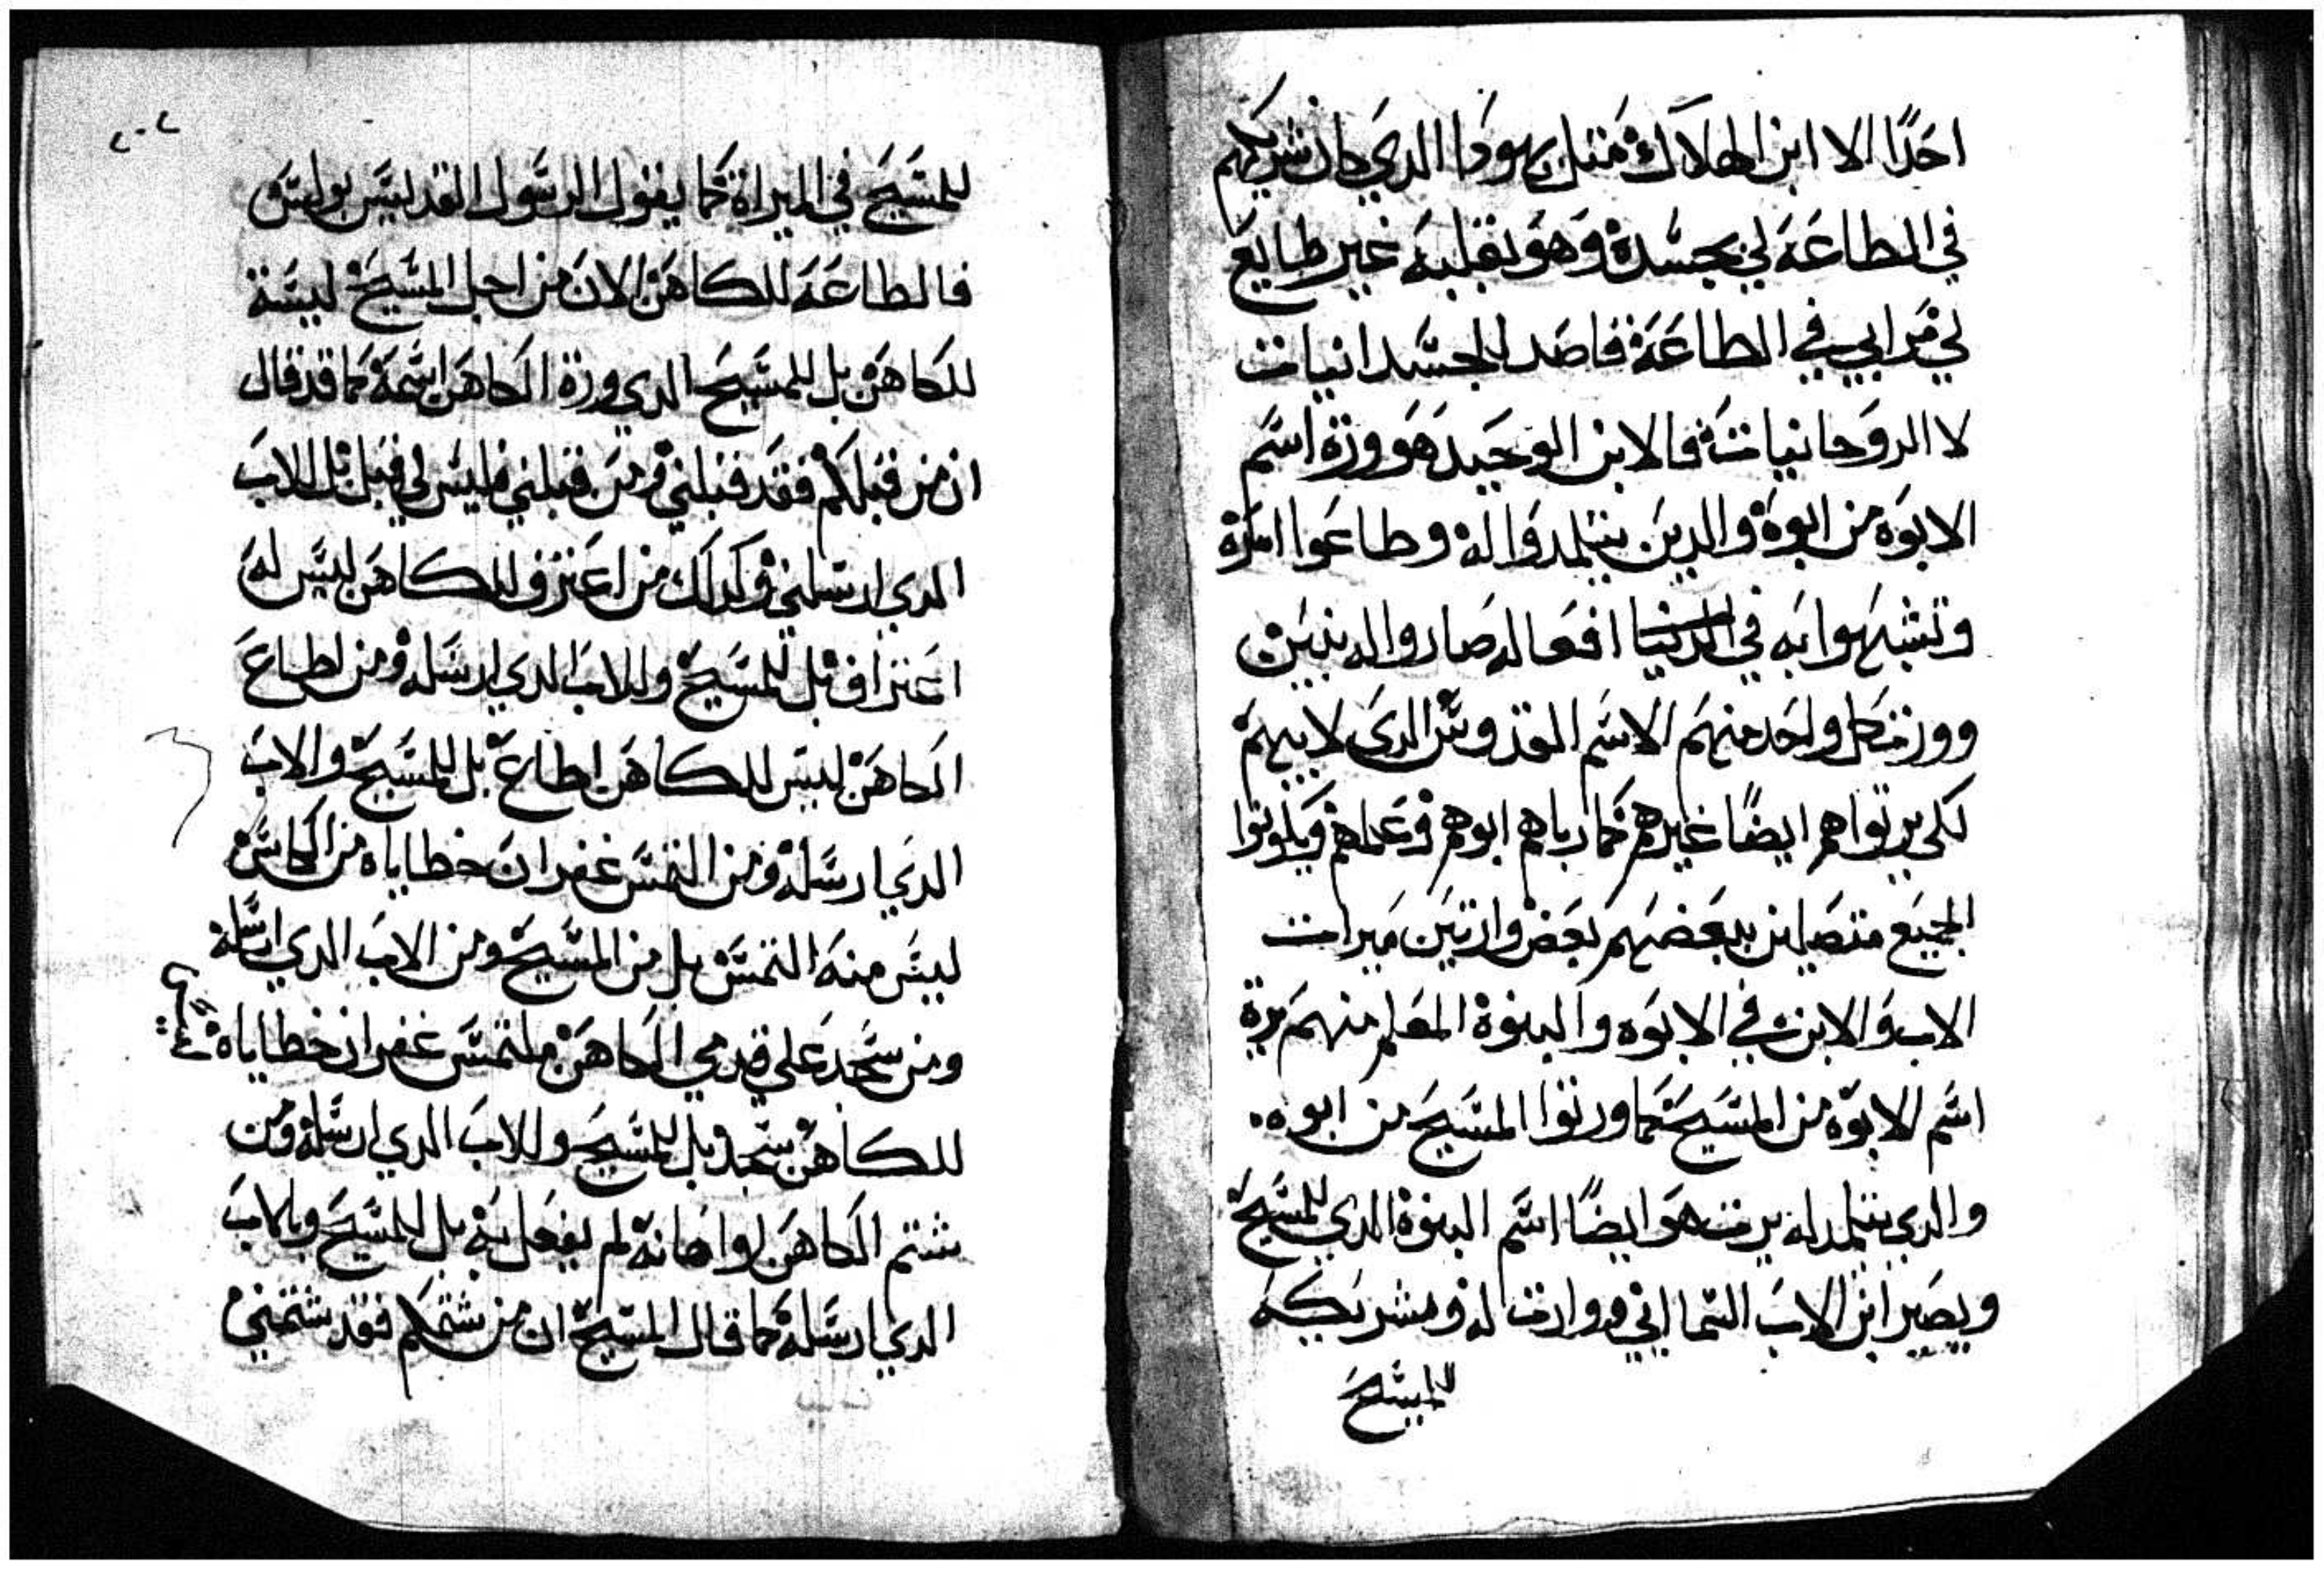 احدًا الا ابن الهلاك مثل يهودا الدي كان شريكهم
في الطاعة لي بجسده وهو بقلبه غير طايع
لي مرابي في الطاعة قاصد الجسدانيات
لا الروحانيات فالابن الوحيد هو ورة اسم
الابوه من ابوة والدين يتتلمدوا له وطاعوا امرة
وتشبهوا به في الدنيا افعاله صاروا اله بنين
وورت كل واحد منهم الاسم القدوس الدي لابيهم
لكي يربواهم ايضًا غيرهم كما رباهم ابوهم وعلمهم ويكونوا
الجميع متصلين ببعضهم بعض وارتين ميرات
الاب والابن في الابوه والبنوة المعلم منهم يرة
اسم الابوة من المسيح كما ورتوا المسيح من ابوه.
والدي يتتلمد له يرت هو ايضًا اسم البنوة الدي للمسيح
ويصير ابن الاب السمااني ووارت له ومشريكه
للمسيح
٢٠٢
للمسيح في الميراة كما يقول الرسول القديس بولس
فالطاعة للكاهن الان من اجل المسيح ليسة
للكاهن بل للمسيح الدي ورة الكاهن اسمه كما قد قال
ان من قبلكم فقد قبلني ومن قبلني فليس لي قبل بل للاب
الدي ارسلني وكدلك من اعترف للكاهن ليس له
اعتراف بل للمسيح وللاب الدي ارسله ومن اطاع
الكاهن ليس للكاهن اطاع بل للمسيح والاب
الدي ارسله ومن التمس غفران خطاياه من الكاهن
ليس منه التمس بل من المسيح ومن الاب الدي ارسله
ومن سجد علي قدمي الكاهن ملتمس غفران خطاياه
للكاهن سجد بل للمسيح وللاب الدي ارسله ومن
شتم الكاهن او اهانه لم يفعل به بل للمسيح وبالاب
الدي ارسله كما قال المسيح ان من شتمكم فقد شتمني